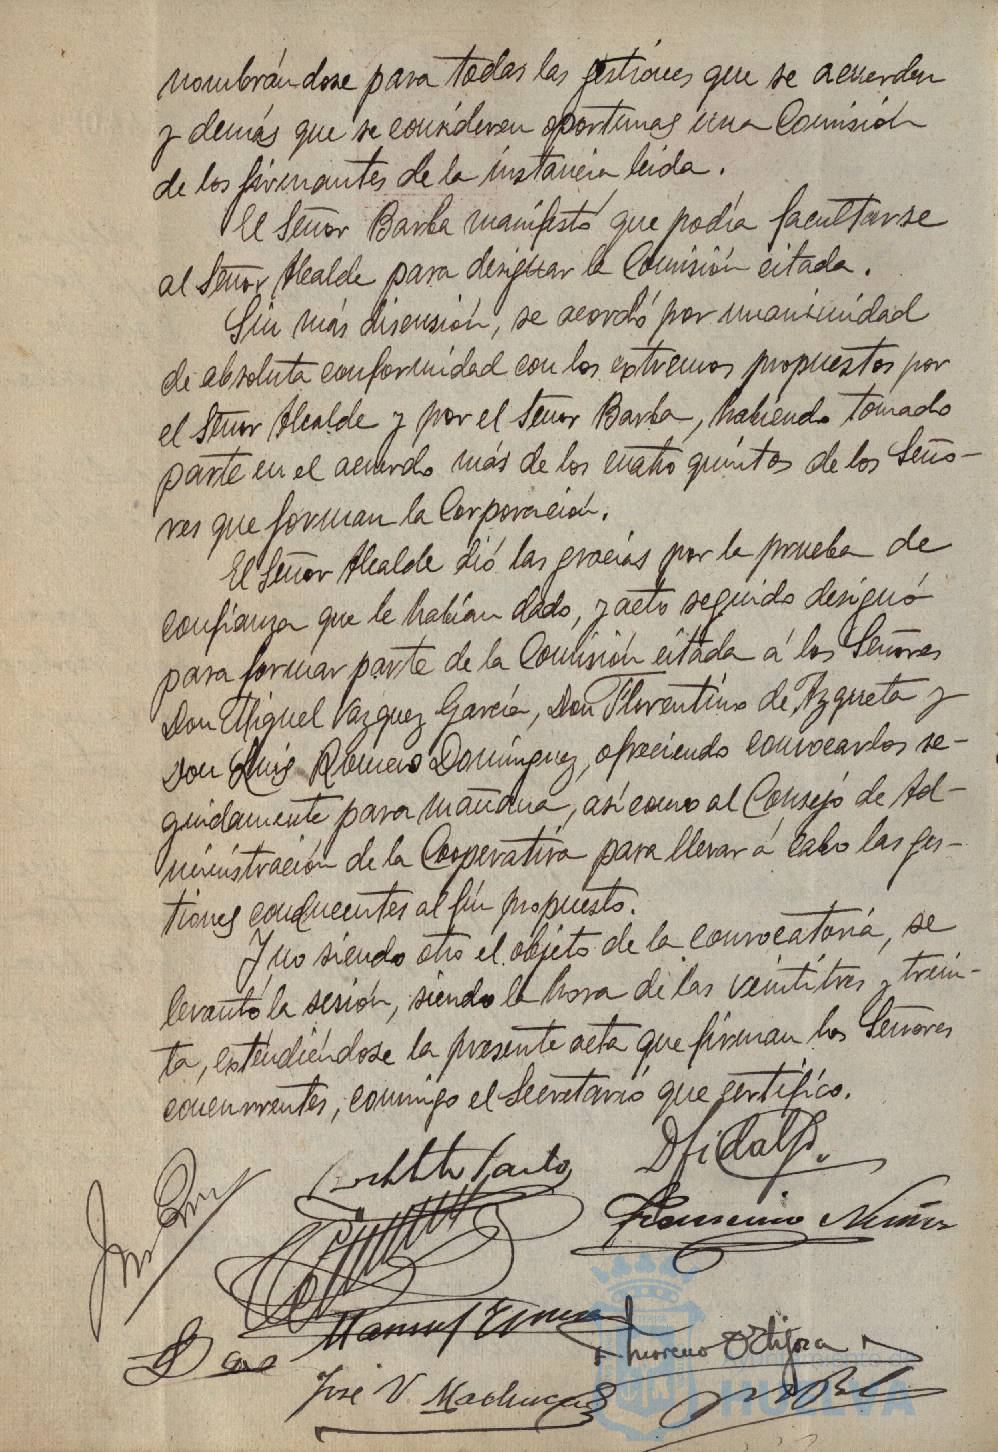 nombrándose para todas las gestiones que se acuerden
y demás que se consideren oportunas una Comisión
de los firmantes de la instancia leida.
El Señor Barba manifestó que podía facultarse
al Señor Alcalde para designar la Comisión citada.
Sin más discusión, se acordó por unanimidad
de absoluta conformidad con los extremos propuestos por
el Señor Alcalde y por el Señor Barba, habiendo tomado
parte en el acuerdo más de los cuatro quintos de los Seño-
res que forman la Corporación.
El Señor Alcalde dió las gracias por la prueba de
confianza que le habían dado, y acto seguido designó
para formar parte de la Comisión citada á los Señores
Don Miguel Vazquez García, Don Florentino de Azqueta y
Don Luis Romero Domínguez, ofreciendo convocarlos se-
guidamente para mañana, así como al Consejo de Ad-
ministración de la Cooperativa para llevar á cabo las ges-
tiones conducentes al fín propuesto.
Y no siendo otro el objeto de la convocatoria, se
levantó la sesión, siendo la hora de las veintitres y trein-
ta, extendiéndose la presente acta que firman los Señores
concurrentes, conmigo el Secretario que certifico.
D Fidalgo
Núñez
Manuel
Moreno Ortijosa
José V. Machuca
HUELVA